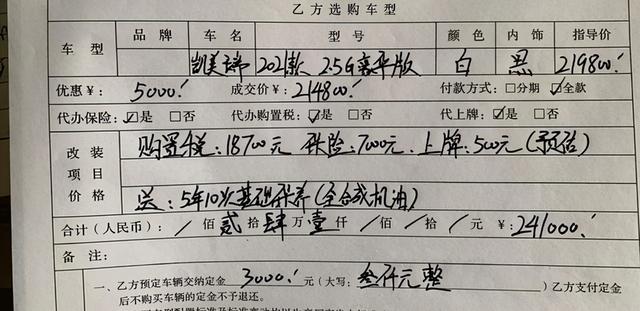 乙方选购车型
车型 品牌 车名 型号 颜色 内饰 指导价
凯美瑞 2021款 2.5G豪华版 白 黑 219800.-
优惠¥: 5000.- 成交价¥: 214800.- 付款方式: □分期 ☑全款
代办保险: ☑是 □否 代办购置税: ☑是 □否 代上牌: ☑是 □否
改装项目价格 购置税:18700元 保险:7000元.上牌:500元(预估)
送:5年10次基础保养(全合成机油)
合计(人民币): / 佰 贰 拾 肆 万 壹 仟 / 佰 / 拾 / 元 ¥: 241000.-
备注:
一、乙方预定车辆交纳定金 3000.- 元(大写: 叁仟元整 )乙方支付定金
后不购买车辆的定金不予退还。